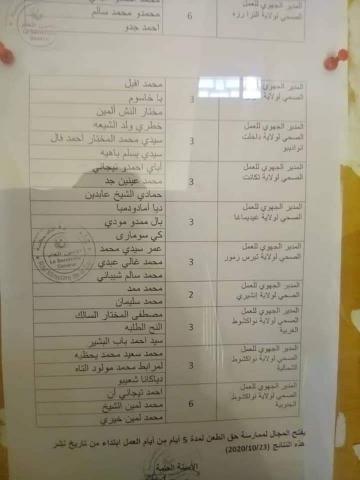 المدير الجهوي للعمل
الصحي لولاية الترارزة
6
محمدو محمد سالم
احمد جدو
المدير الجهوي للعمل
الصحي لولاية
3
محمد اقبل
با خاسوم
مختار النش ألمين
المدير الجهوي للعمل
الصحي لولاية داخلت
انواذيبو
3
خطري ولد الشيعه
سيدي محمد المختار احمد فال
سيدي يسلم باهيه
المدير الجهوي للعمل
الصحي لولاية تكانت
3
أباي احمدو تيجاني
محمد عينين جد
حمادي الشيخ عابدين
المدير الجهوي للعمل
الصحي لولاية كيديماغا
3
ديا أمادودمبا
بال ممدو مودي
كي سومارى
المدير الجهوي للعمل
الصحي لولاية تيرس زمور
3
عمر سيدي محمد
محمد غالي عبدي
محمد سالم شيباني
المدير الجهوي للعمل
الصحي لولاية إنشيري
2
محمد ممد
محمد سليمان
المدير الجهوي للعمل
الصحي لولاية نواكشوط
الغربية
3
مصطفى المختار السالك
النح الطلبه
سيد احمد باب البشير
المدير الجهوي للعمل
الصحي لولاية نواكشوط
الشمالية
3
محمد سعيد محمد يحظيه
لمرابط محمد مولود الناه
دياكانا شعيبو
المدير الجهوي للعمل
الصحي لولاية نواكشوط
الجنوبية
6
احمد تيجاني آن
محمد لمين الشيخ
محمد لمين خيري
يفتح المجال لممارسة حق الطعن لمدة 5 أيام من أيام العمل ابتداء من تاريخ نشر
هذه النتائج (2020/10/23)
الأمينة العامة